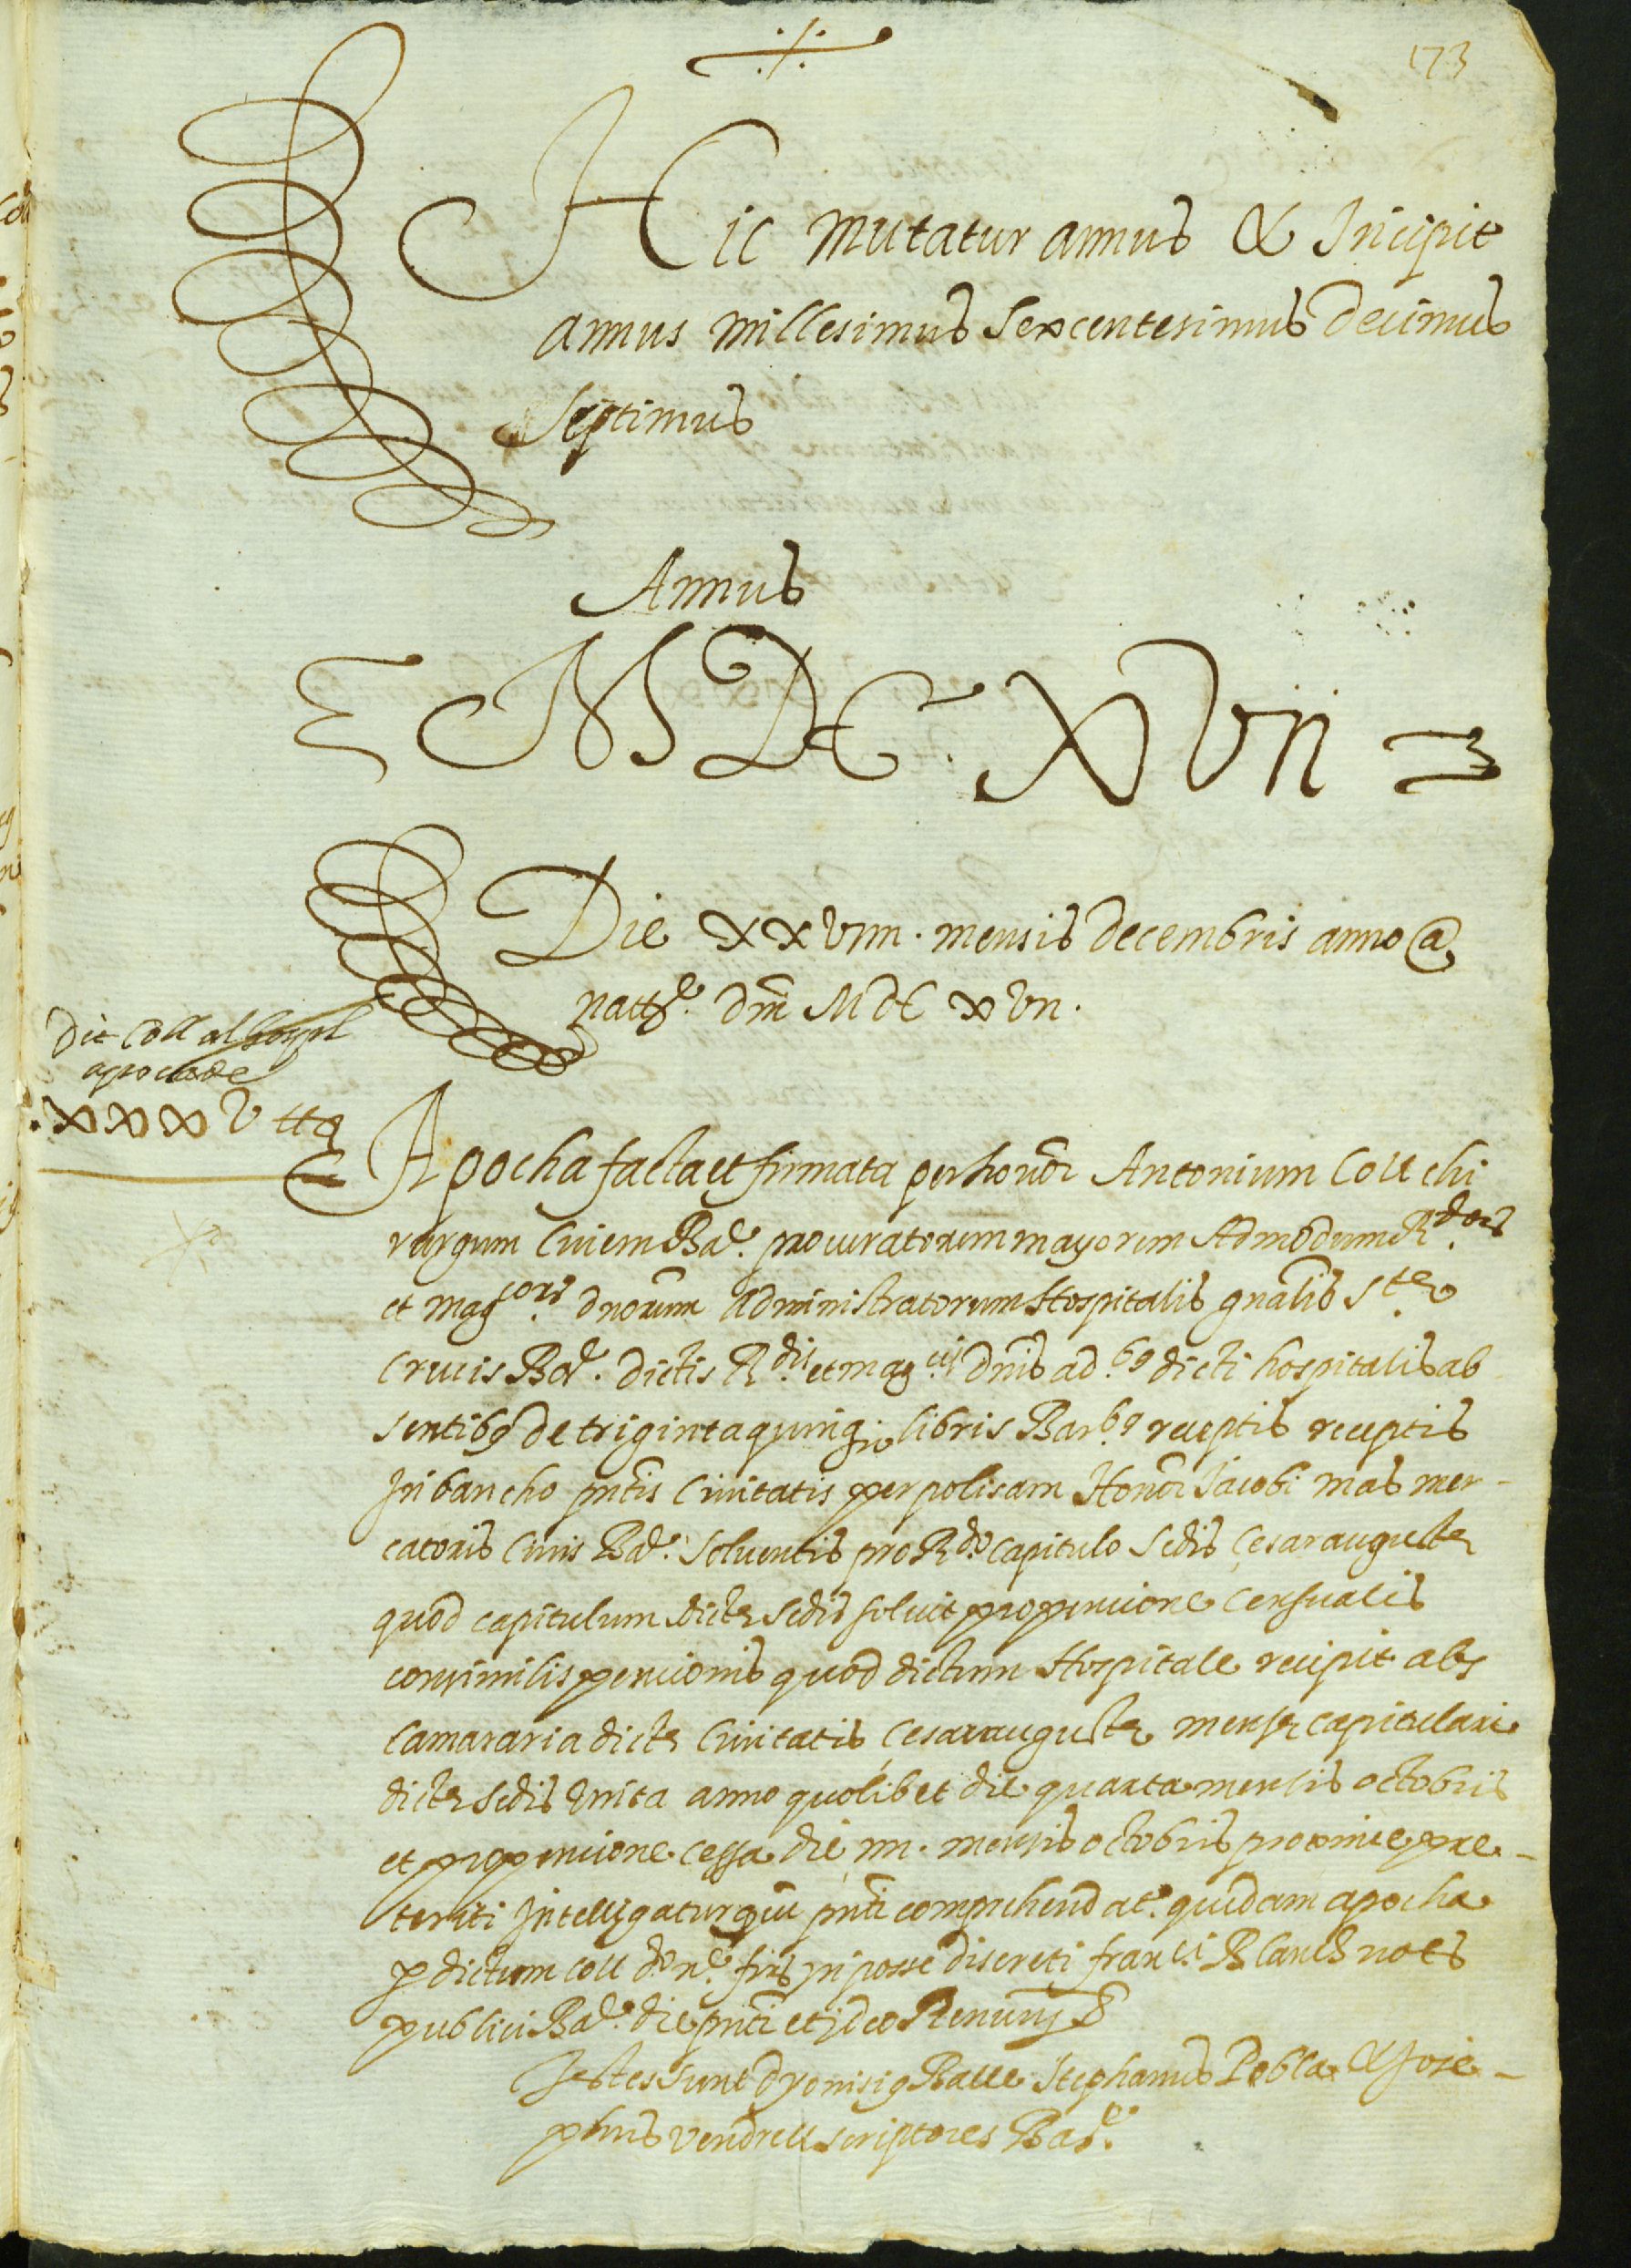 173
Hic mutatur annus & Incipit
annus millesimus Sexcentesimus Decimus
Septimus
Annus
MDC XVII
Die XXVIIII. mensis Decembris anno a
natte. Dni MDC XVII.
Dit Coll al hospl
apoca de
.XXXV ll
Apocha facta et firmata per honor Antonium Coll chi
rurgum Civem Bar. procuratorem mayorem Admodum Rdors
et magcors. dnorum Administratorum Hospitalis gnalis Ste
Crucis Bar. dictis Rdis et magcis dnis ad.bs dicti hospitalis ab
sentibs de triginta quinq libris Bar.bs receptis receptis
In bancho pntis Civitatis per polisam Honor Jacobi mas mer-
catoris Civis Bar. Solventis pro Rdo. Capitulo Sedis Cesarauguste
quod capitulum dicte sedis solvit pro pencione Censualis
consimilis pencionis quod dictum Hospitale recipit
Camararia dicte Civitatis Cesarauguste mense capitulari
dicte sedis Unita anno quolibet die quarta mensis octobris
et pro pencione cessa die IIII. mensis octobris proxime pre-
teriti Intelligatur comprehendat. quedam apocha
p dictum Coll In posse discreti franci. Blanch nots
publici Bar. die pnti et Ideo Renun &
Testes sunt Dyonisis Balle Stephanus Pobla & Jose-
phus vendrell scriptores Bar.